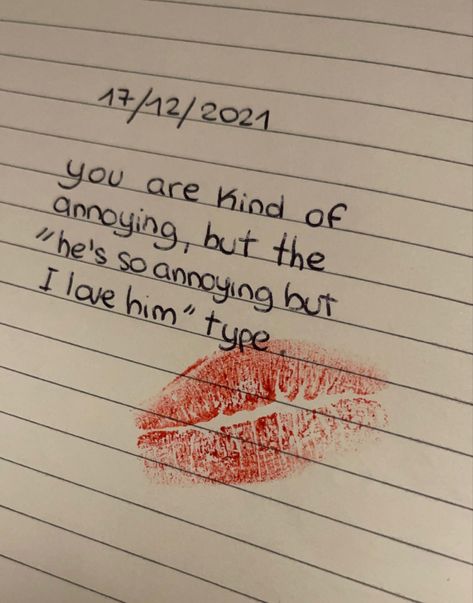 17/12/2021
you are kind of
annoying, but the
"he's so annoying but
I love him" type.